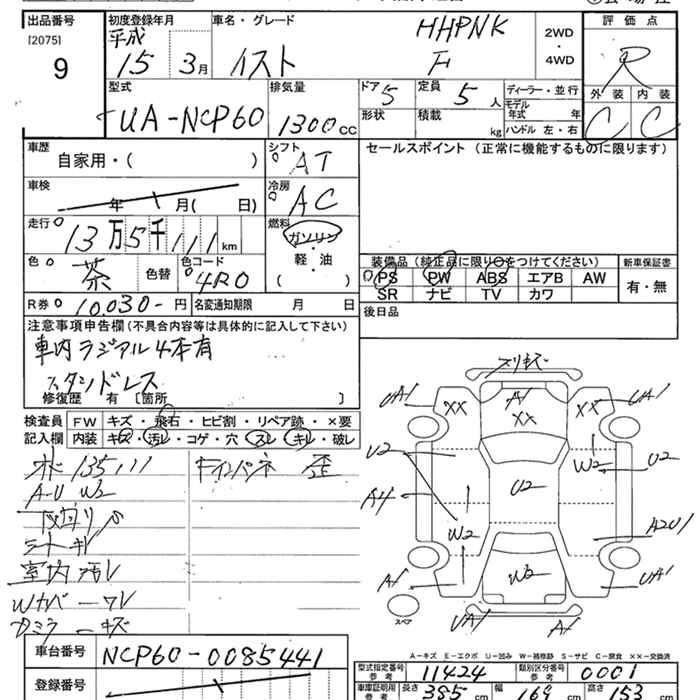 出品番号 初度登録年月 車名・グレード HHPNK 2WD 評価点
[2075] 平成 ・
9 15 3月 イスト F 4WD R
型式 排気量 ドア 5 定員 5人 ディーラー・並行 外装 内装
UA-NCP60 1300cc 形状 積載 kg モデル年式 年 C C
ハンドル 左・右
車歴 シフト セールスポイント (正常に機能するものに限ります)
自家用・( ) AT
車検 冷房
年 月( 日) AC
走行 燃料
13万5千111km ガソリン
軽・油
( )
装備品 (純正品に限り○をつけてください) 新車保証書
色 色替 色コード PS PW ABS エアB AW 有・無
茶 4R0 SR ナビ TV カワ
R券 10,030-円 名変通知期限 月 日 後日品
注意事項申告欄(不具合内容等は具体的に記入して下さい)
車内ラジアル4本有
スタンドレス
修復歴 有 [箇所 ]
検査員 FW キズ・飛石・ヒビ割・リペア跡・×要
記入欄 内装 キズ・汚レ・コゲ・穴 スレ・キレ・破レ
135,111
A-U W2
下廻リ
シートキレ
室内汚レ
歪
プリキズ
UA1 XX A1 XX XX UA1
U2 W2 U2
U2
A4 W2 A2U1
A1 W2 UA1
スペア UA1 A1
A-キズ E-エクボ U-凹み W-補修跡 S-サビ C-腐食 ××-交換済
車台番号 NCP60-0085441
型式指定番号 参考 11424 類別区分番号 参考 0001
登録番号
車庫証明用 参考 長さ 385cm 幅 169cm 高さ 153cm